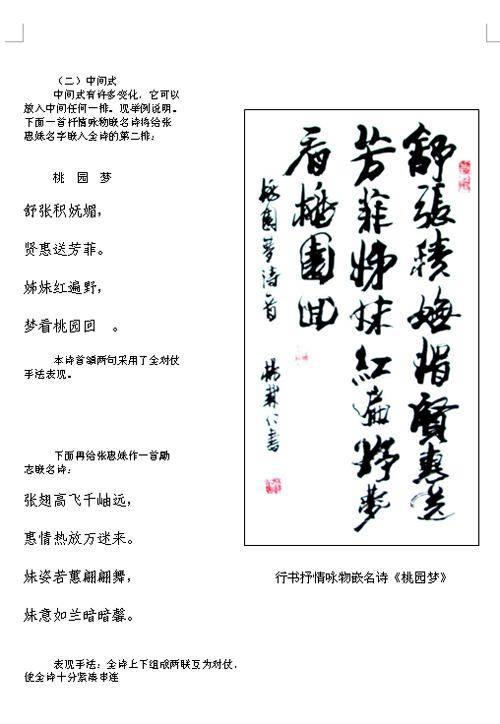 （二）中间式
中间式有许多变化，它可以
放入中间任何一排。现举例说明。
下面一首抒情咏物嵌名诗将给张
惠妹名字嵌入全诗的第二排：
桃 园 梦
舒张积妩媚，
贤惠送芳菲。
姊妹红遍野，
梦看桃园回 。
本诗首颔两句采用了全对仗
手法表现。
下面再给张惠妹作一首励
志嵌名诗：
张翅高飞千岫远，
惠情热放万迷来。
妹姿若蕙翩翩舞，
妹意如兰暗暗馨。
表现手法：全诗上下组成两联互为对仗，
使全诗十分紧凑串连
舒張積嫵媚賢惠送
芳菲姊妹紅遍野夢
看桃園回
桃園夢詩首
行书抒情咏物嵌名诗《桃园梦》